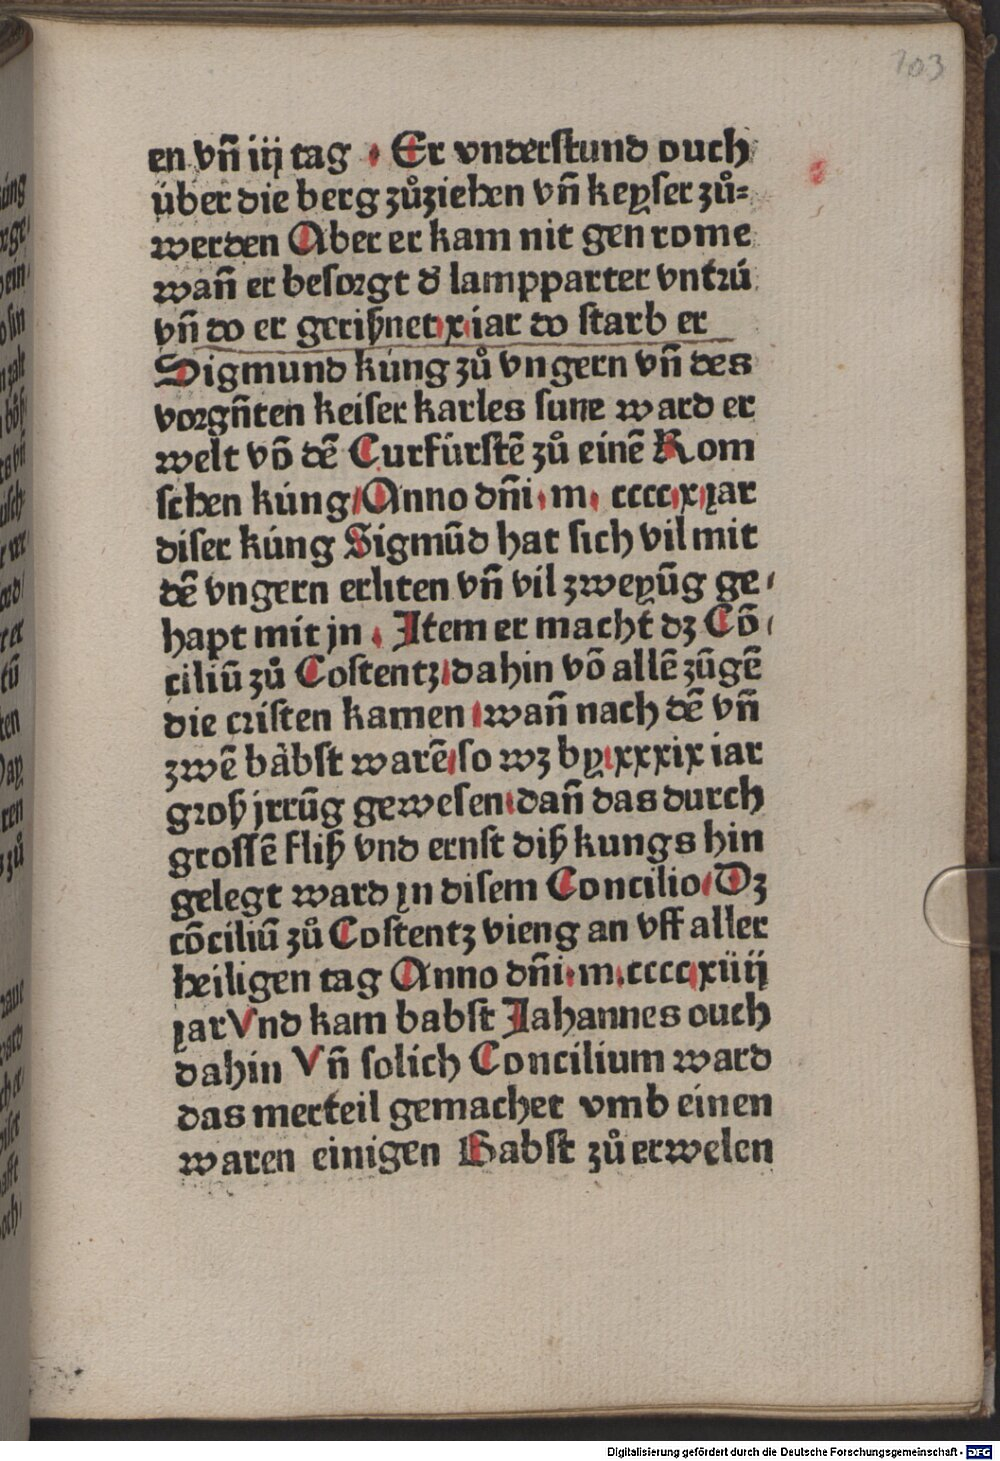 103
en vn̄ iij tag · Er vnderſtund ouch
über die berg zůziehen vn̄ keyſer zů=
werden Aber er kam nit gen rome
wan̄ er beſorgt d̓ lampparter vntrú
vn̄ do er gerißnet x iar do ſtarb er
Sigmund kúng zů vngern vn̄ des
vorgn̄ten keiſer karles ſune ward er
welt vō dē Curfúrſtē zů einē Rom
ſchen kúng/ Anno dn̄i·m· cccc·x·jar
diſer kúng Sigmūd hat ſich vil mit
dē vngern erliten vn̄ vil zweyūg ge/
hapt mit jn · Item er macht dz Cō/
ciliū zů Coſtentz/dahin vō allē zūgē
die criſten kamen/wan̄ nach dē vn̄
zwē bàbſt warē/ſo wz by·xxxix iar
groß jrrūg geweſen·dan̄ das durch
groſſē fliß vnd ernſt diß kungs hin
gelegt ward jn diſem Concilio/Dz
cōciliū zů Coſtentz vieng an vff aller
heiligen tag Anno dn̄i·m·cccc·xiiij
jar Vnd kam babſt Jahannes ouch
dahin Vn̄ ſolich Concilium ward
das merteil gemachet vmb einen
waren einigen Babſt zů erwelen
Digitalisierung gefördert durch die Deutsche Forschungsgemeinschaft - DFG